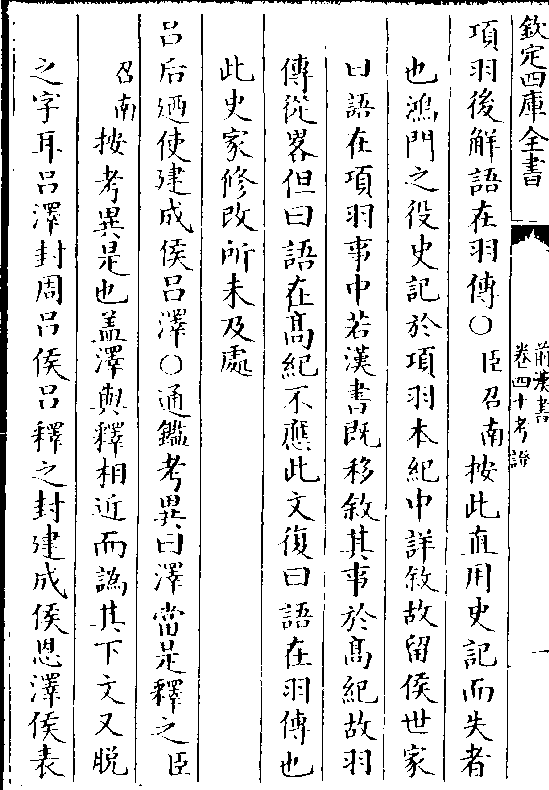 欽定四庫全書
前漢書
卷四十考證
一
項羽後解語在羽傳○臣召南按此直用史記而失者
也鴻門之役史記於項羽本紀中詳敘故留侯世家
曰語在項羽事中若漢書既移敘其事於髙紀故羽
傳從畧但曰語在髙紀不應此文復曰語在羽傳也
此史家修改所未及處
吕后廼使建成侯吕澤○通鑑考異曰澤當是釋之臣
召南按考異是也蓋澤與釋相近而譌其下文又脫
之字耳吕澤封周吕侯吕釋之封建成侯恩澤侯表